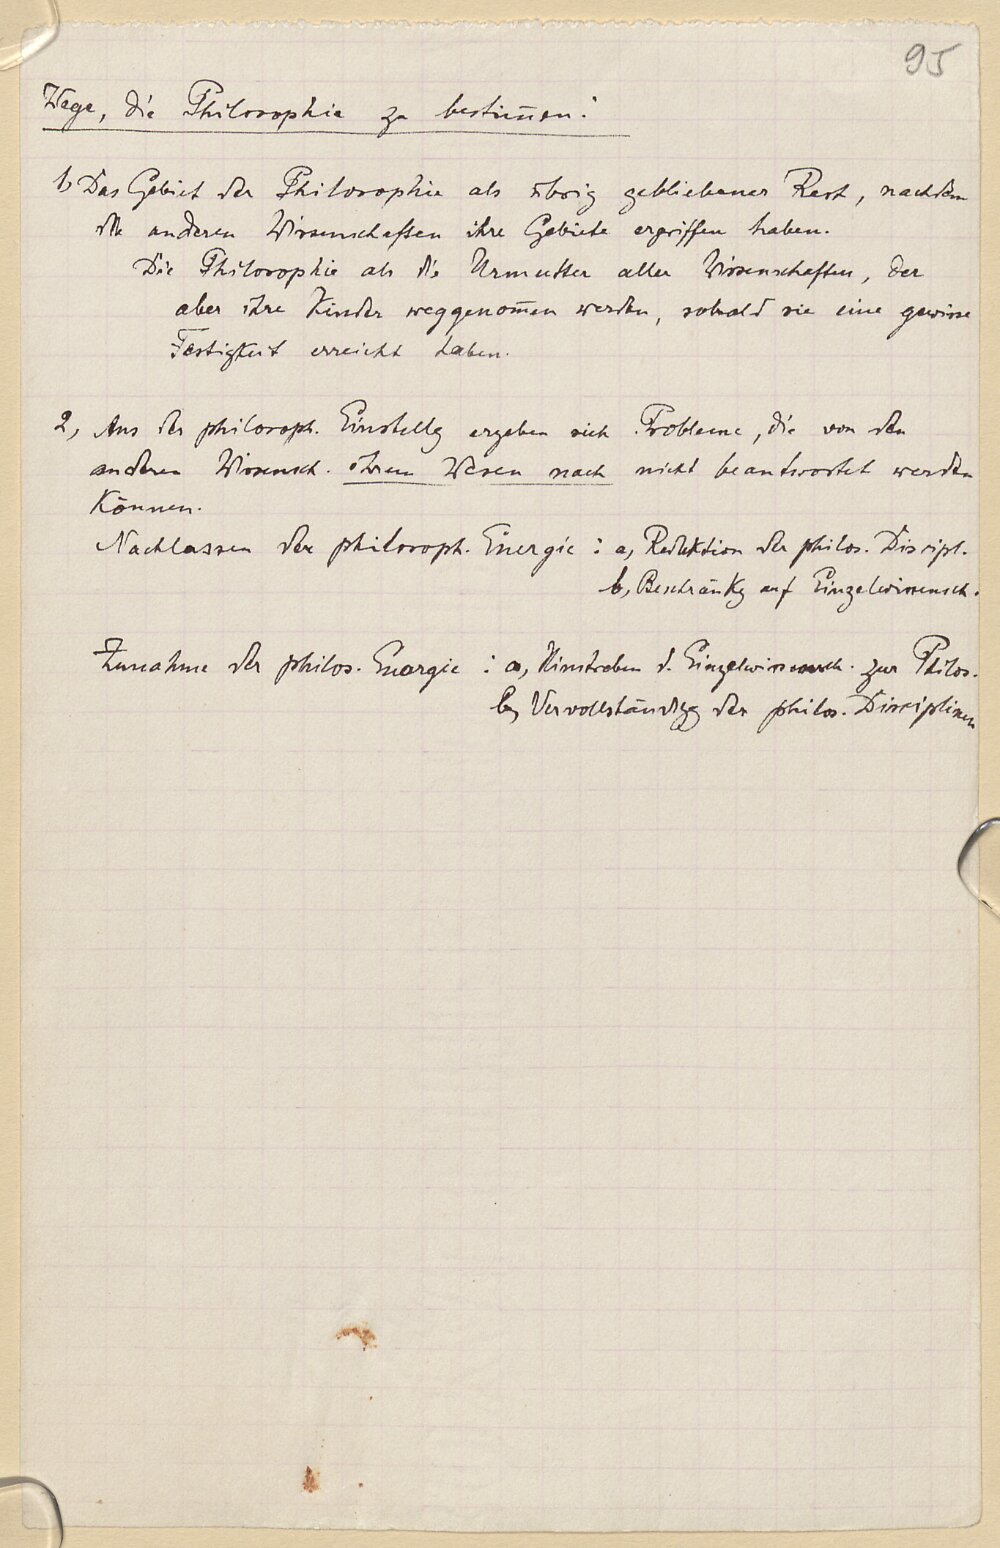 95
Wege, die Philosophie zu bestim̄en:
1, Das Gebiet der Philosophie als übrig gebliebener Rest, nachdem
die anderen Wissenschaften ihre Gebiete ergriffen haben.
Die Philosophie als die Urmutter aller Wissenschaften, der
aber ihre Kinder weggenom̄en werden, sobald sie eine gewisse
Festigkeit erreicht haben.
2, Aus der philosoph. Einstellg ergeben sich Probleme, die von den
anderen Wissensch. ihrem Wesen nach nicht beantwortet werden
können.
Nachlassen der philosoph. Energie: a, Reduktion der philos. Discipl.
b, Beschränkg auf Einzelwissensch.
Zunahme der philos. Energie: a, Hinstreben d. Einzelwissensch. zur Philos.
b, Vervollständigg der philos. Disciplinen